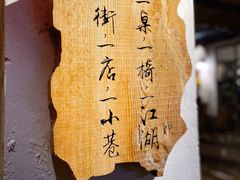 一桌，一椅，一江湖
街，一店，一小巷